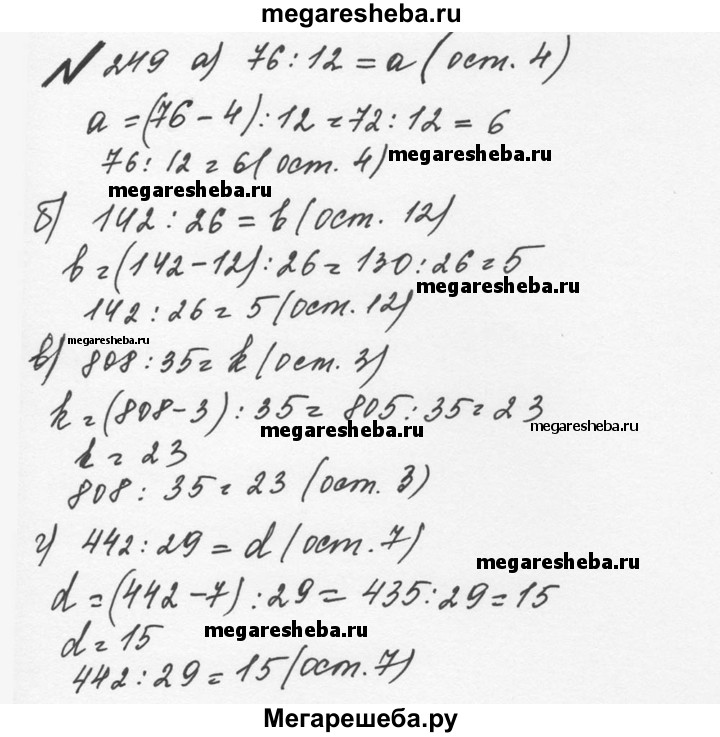 megaresheba.ru
№ 249 а) 76 : 12 = a (ост. 4)
a = (76 - 4) : 12 = 72 : 12 = 6
76 : 12 = 6 (ост. 4) megaresheba.ru
megaresheba.ru
б) 142 : 26 = b (ост. 12)
b = (142 - 12) : 26 = 130 : 26 = 5
megaresheba.ru
142 : 26 = 5 (ост. 12)
megaresheba.ru
в) 808 : 35 = k (ост. 3)
k = (808 - 3) : 35 = 805 : 35 = 23
megaresheba.ru megaresheba.ru
k = 23
808 : 35 = 23 (ост. 3)
г) 442 : 29 = d (ост. 7)
megaresheba.ru
d = (442 - 7) : 29 = 435 : 29 = 15
d = 15 megaresheba.ru
442 : 29 = 15 (ост. 7)
Мегарешеба.ру